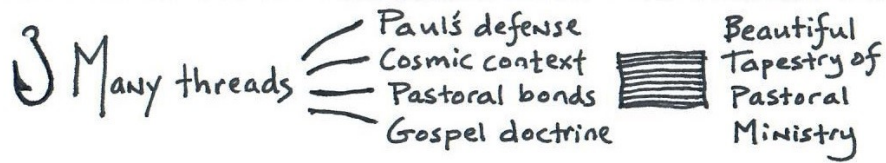 Many threads
Paul's defense
Cosmic context
Pastoral bonds
Gospel doctrine
Beautiful
Tapestry of
Pastoral
Ministry